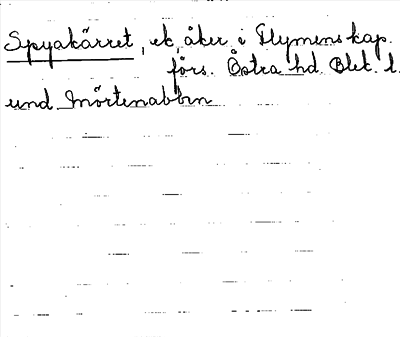 Spyakärret, ek, åker i Flymens kap.
förs. Östra hd Blek. l.
und Mörtenabbin